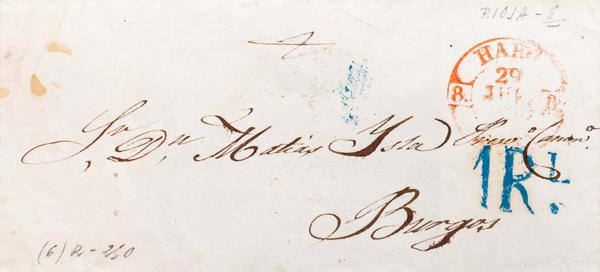 RIOJA-8
HARO
29
JUL
8.
Sr. Dn. Matias Ysla
1 Rl.
Burgos
(6) R-260